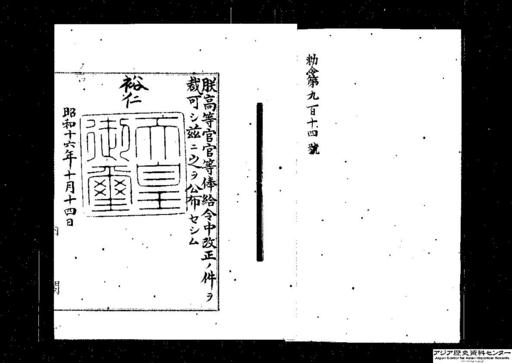 勅令第九百十四號
朕高等官官等俸給令中改正ノ件ヲ
裁可シ茲ニ之ヲ公布セシム
裕仁
天皇
御璽
昭和十六年十月十四日
アジア歴史資料センター
Japan Center for Asian Historical Records